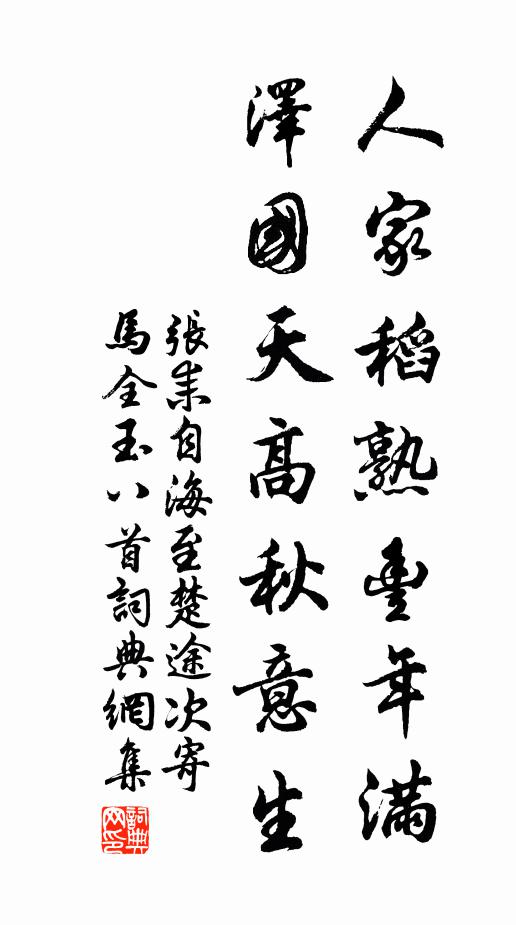 人家稻熟豐年滿
澤國天高秋意生
張耒自海至楚途次寄
馬全玉八首詞典網集
詞典網印